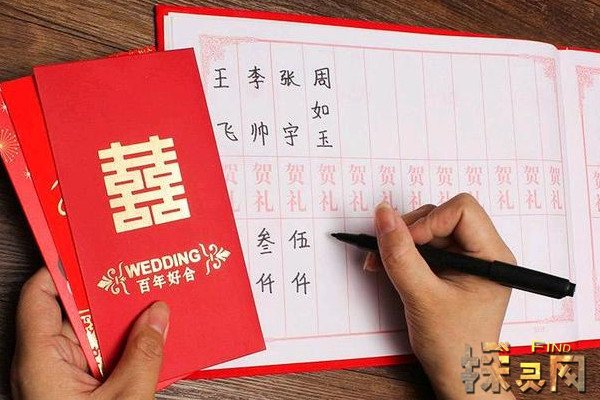 囍
WEDDING
百年好合
王飞
李帅
张宇
周如玉
贺礼
贺礼
贺礼
贺礼
贺礼
贺礼
贺礼
贺礼
贺礼
贺礼
贺礼
贺礼
叁仟
伍仟
FIND
探灵网